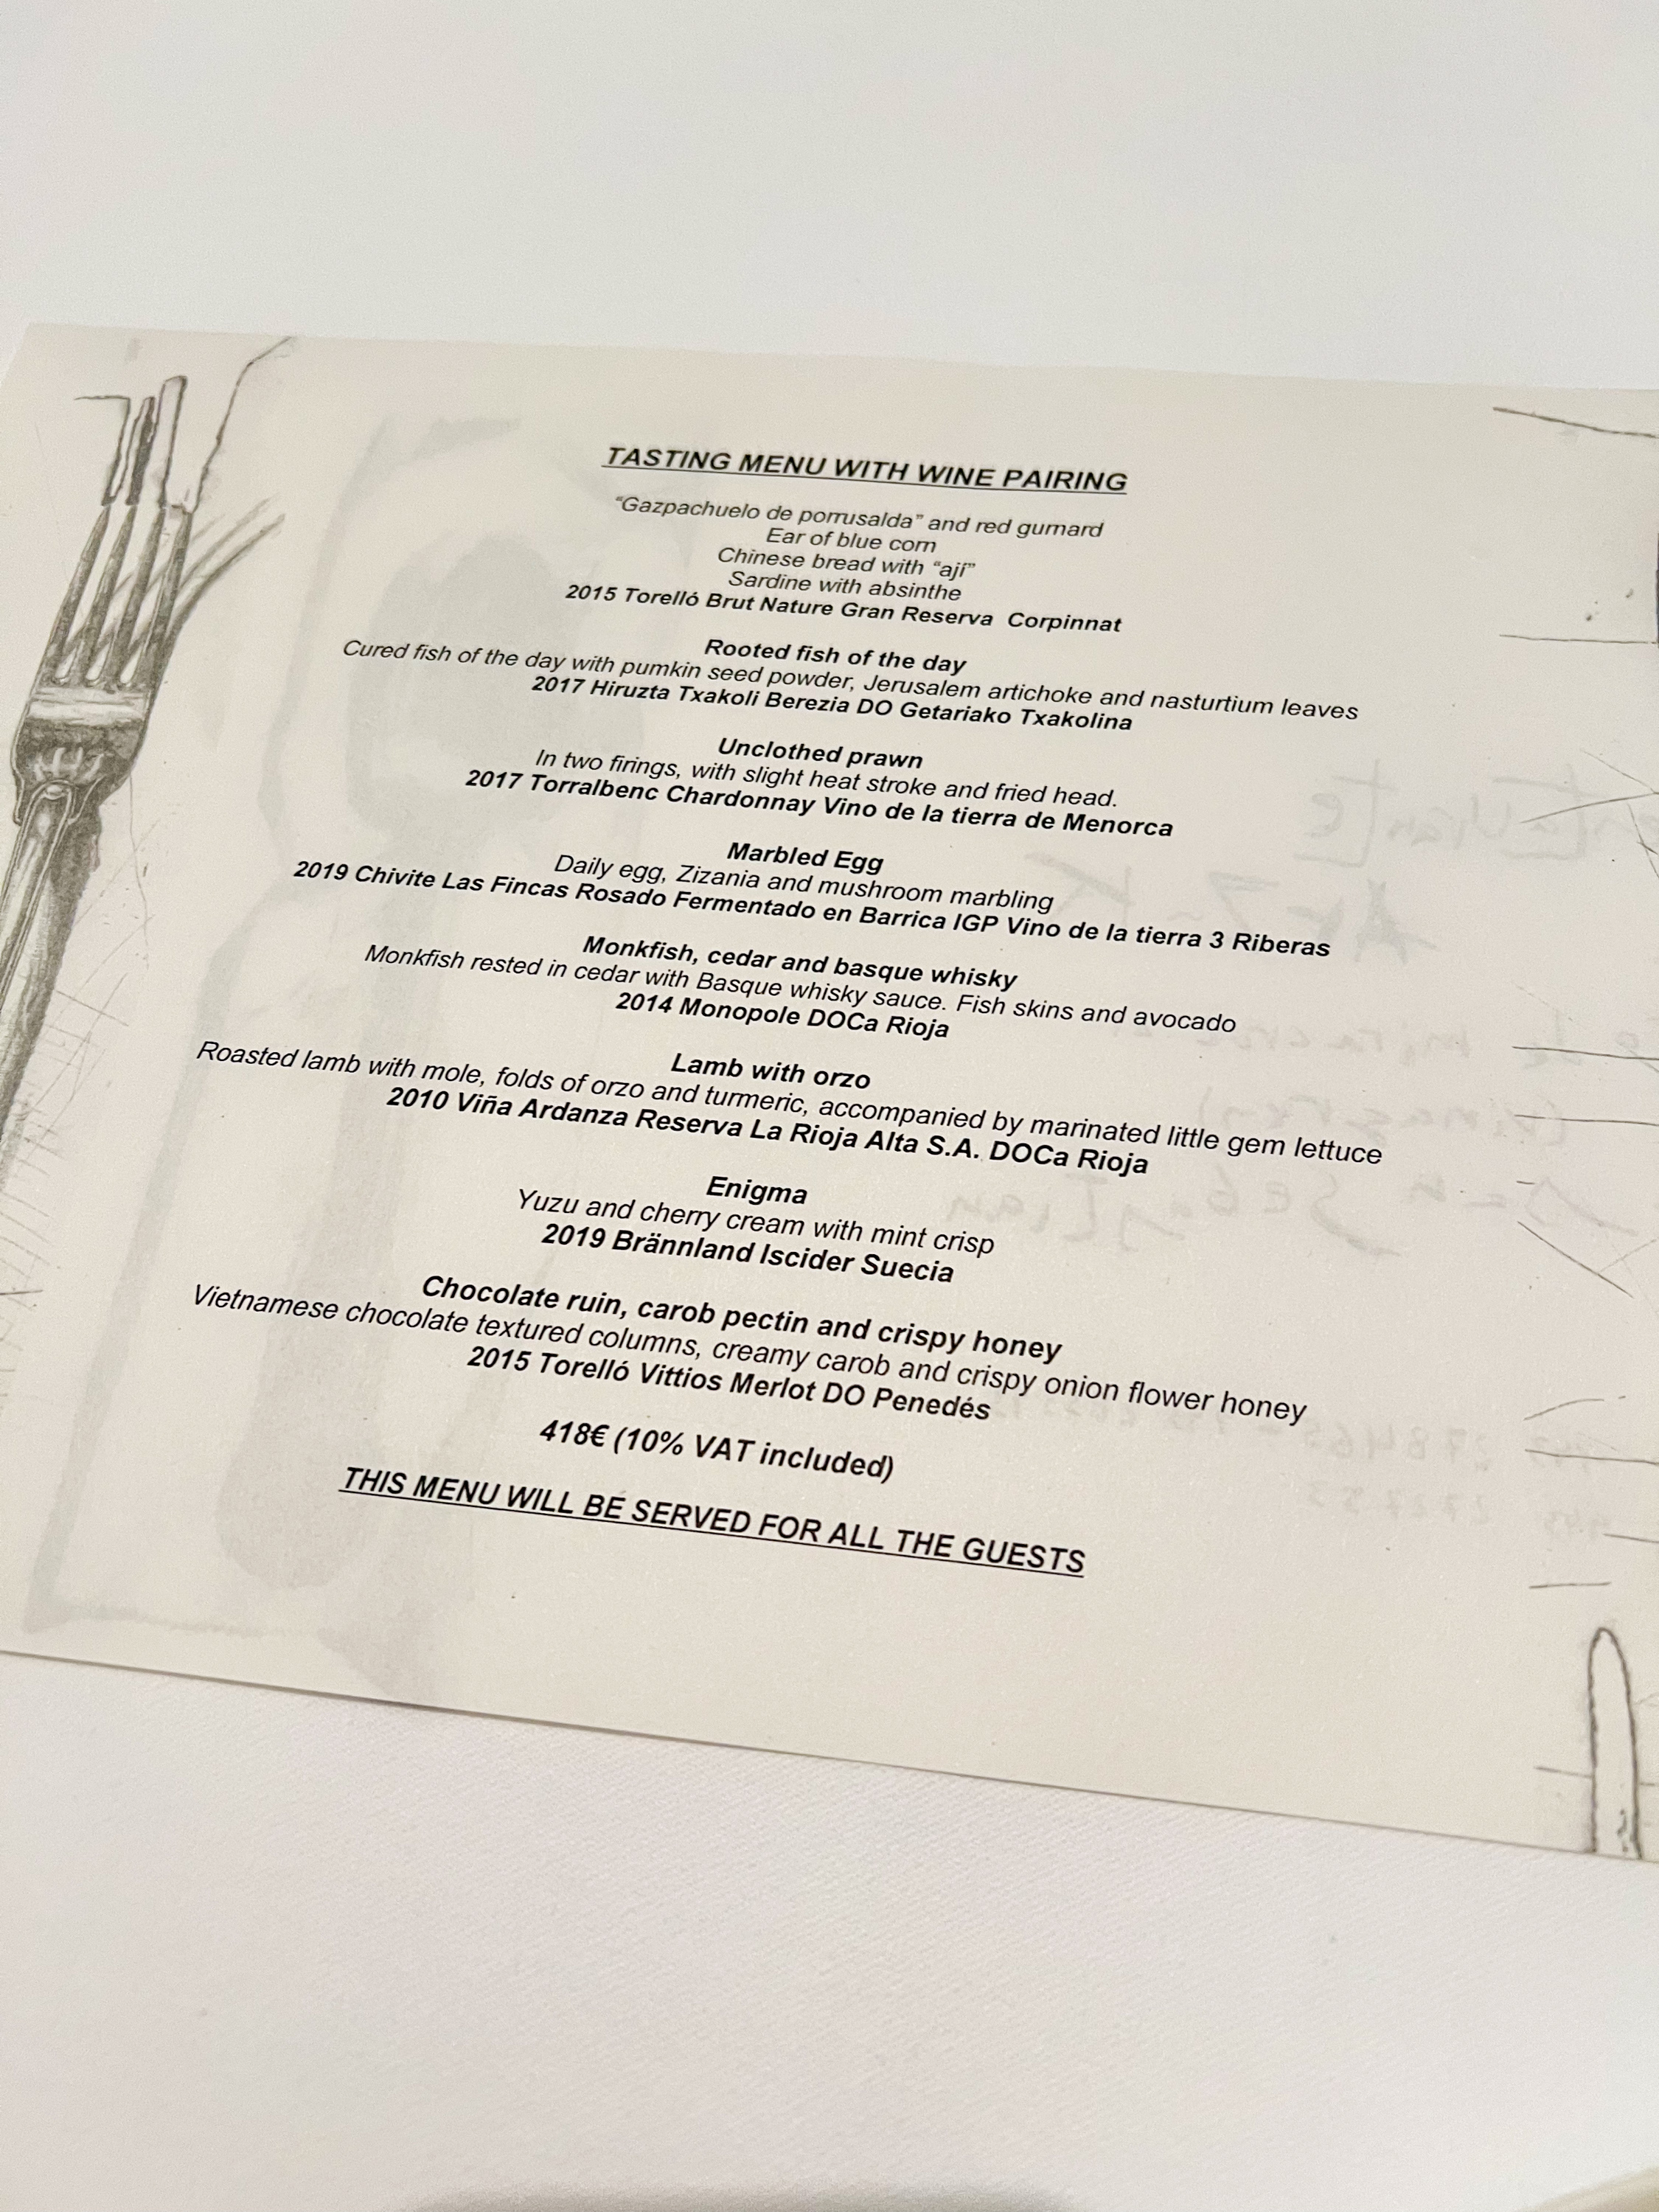 TASTING MENU WITH WINE PAIRING
"Gazpachuelo de porrusalda" and red gurnard
Ear of blue corn
Chinese bread with "ají"
Sardine with absinthe
2015 Torelló Brut Nature Gran Reserva Corpinnat
Rooted fish of the day
Cured fish of the day with pumkin seed powder, Jerusalem artichoke and nasturtium leaves
2017 Hiruzta Txakoli Berezia DO Getariako Txakolina
Unclothed prawn
In two firings, with slight heat stroke and fried head.
2017 Torralbenc Chardonnay Vino de la tierra de Menorca
Marbled Egg
Daily egg, Zizania and mushroom marbling
2019 Chivite Las Fincas Rosado Fermentado en Barrica IGP Vino de la tierra 3 Riberas
Monkfish, cedar and basque whisky
Monkfish rested in cedar with Basque whisky sauce. Fish skins and avocado
2014 Monopole DOCa Rioja
Lamb with orzo
Roasted lamb with mole, folds of orzo and turmeric, accompanied by marinated little gem lettuce
2010 Viña Ardanza Reserva La Rioja Alta S.A. DOCa Rioja
Enigma
Yuzu and cherry cream with mint crisp
2019 Brännland Iscider Suecia
Chocolate ruin, carob pectin and crispy honey
Vietnamese chocolate textured columns, creamy carob and crispy onion flower honey
2015 Torelló Vittios Merlot DO Penedés
418€ (10% VAT included)
THIS MENU WILL BE SERVED FOR ALL THE GUESTS